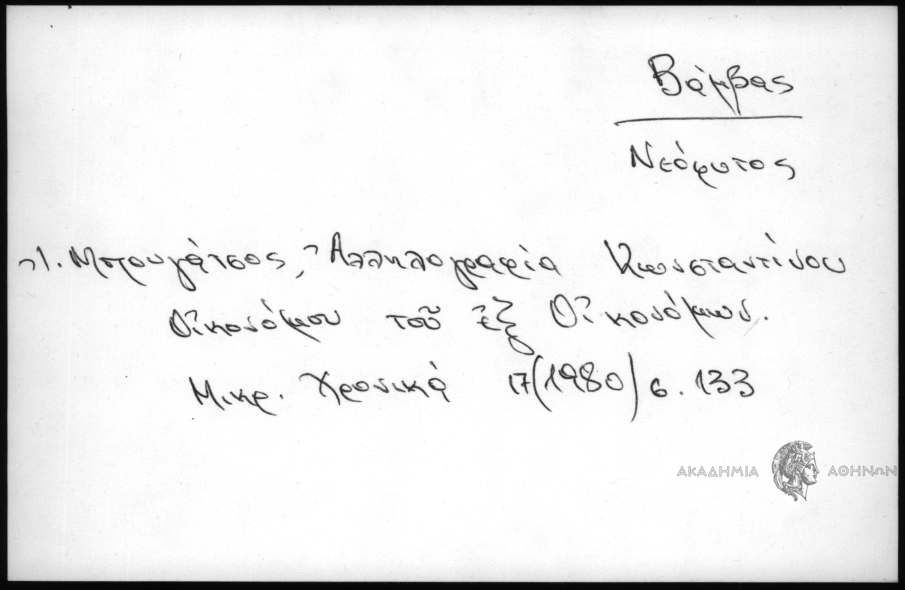 Βάμβας
Νεόφυτος
Ἰ. Μπρουγάτσος, Ἀλληλογραφία Κωνσταντίνου
Οἰκονόμου τοῦ ἐξ Οἰκονόμων.
Μικρ. Χρονικά 17(1980) σ. 133
ΑΚΑΔΗΜΙΑ ΑΘΗΝΩΝ